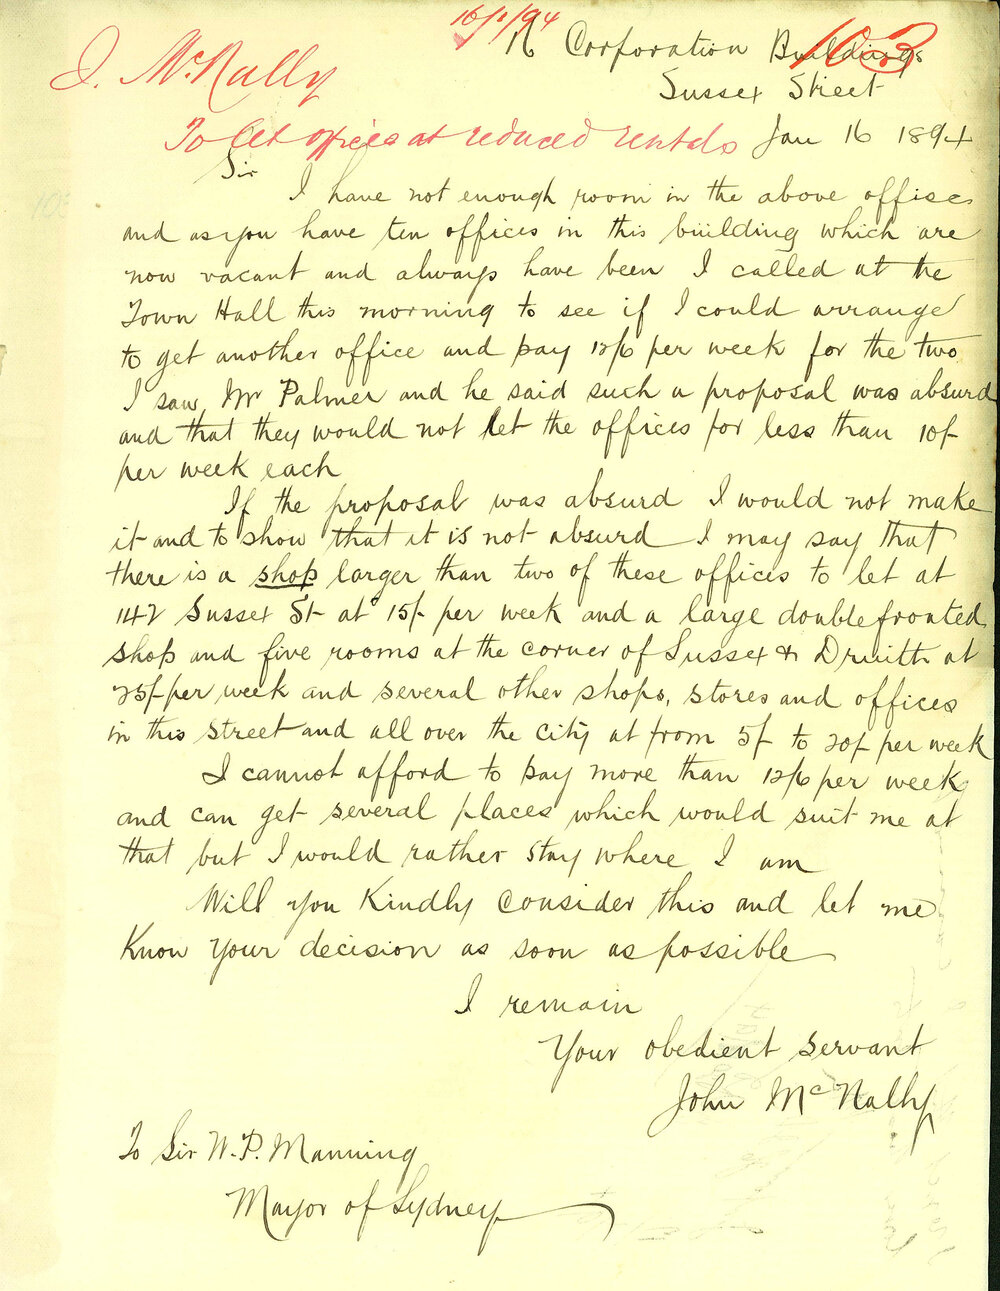 16/1/94
103
J. McNally
Corporation Buildings
Sussex Street
To let offices at reduced rentals
Jan 16 1894
Sir
I have not enough room in the above office
and as you have ten offices in this building which are
now vacant and always have been I called at the
Town Hall this morning to see if I could arrange
to get another office and pay 12/6 per week for the two.
I saw Mr Palmer and he said such a proposal was absurd
and that they would not let the offices for less than 10/-
per week each
If the proposal was absurd I would not make
it and to show that it is not absurd I may say that
there is a shop larger than two of these offices to let at
142 Sussex St at 15/- per week and a large double fronted
shop and five rooms at the corner of Sussex & Druitt at
25/- per week and several other shops, stores and offices
in this street and all over the city at from 5/- to 20/- per week
I cannot afford to pay more than 12/6 per week
and can get several places which would suit me at
that but I would rather stay where I am
Will you Kindly consider this and let me
Know your decision as soon as possible
I remain
Your obedient servant
John McNally
To Sir W. P. Manning
Mayor of Sydney